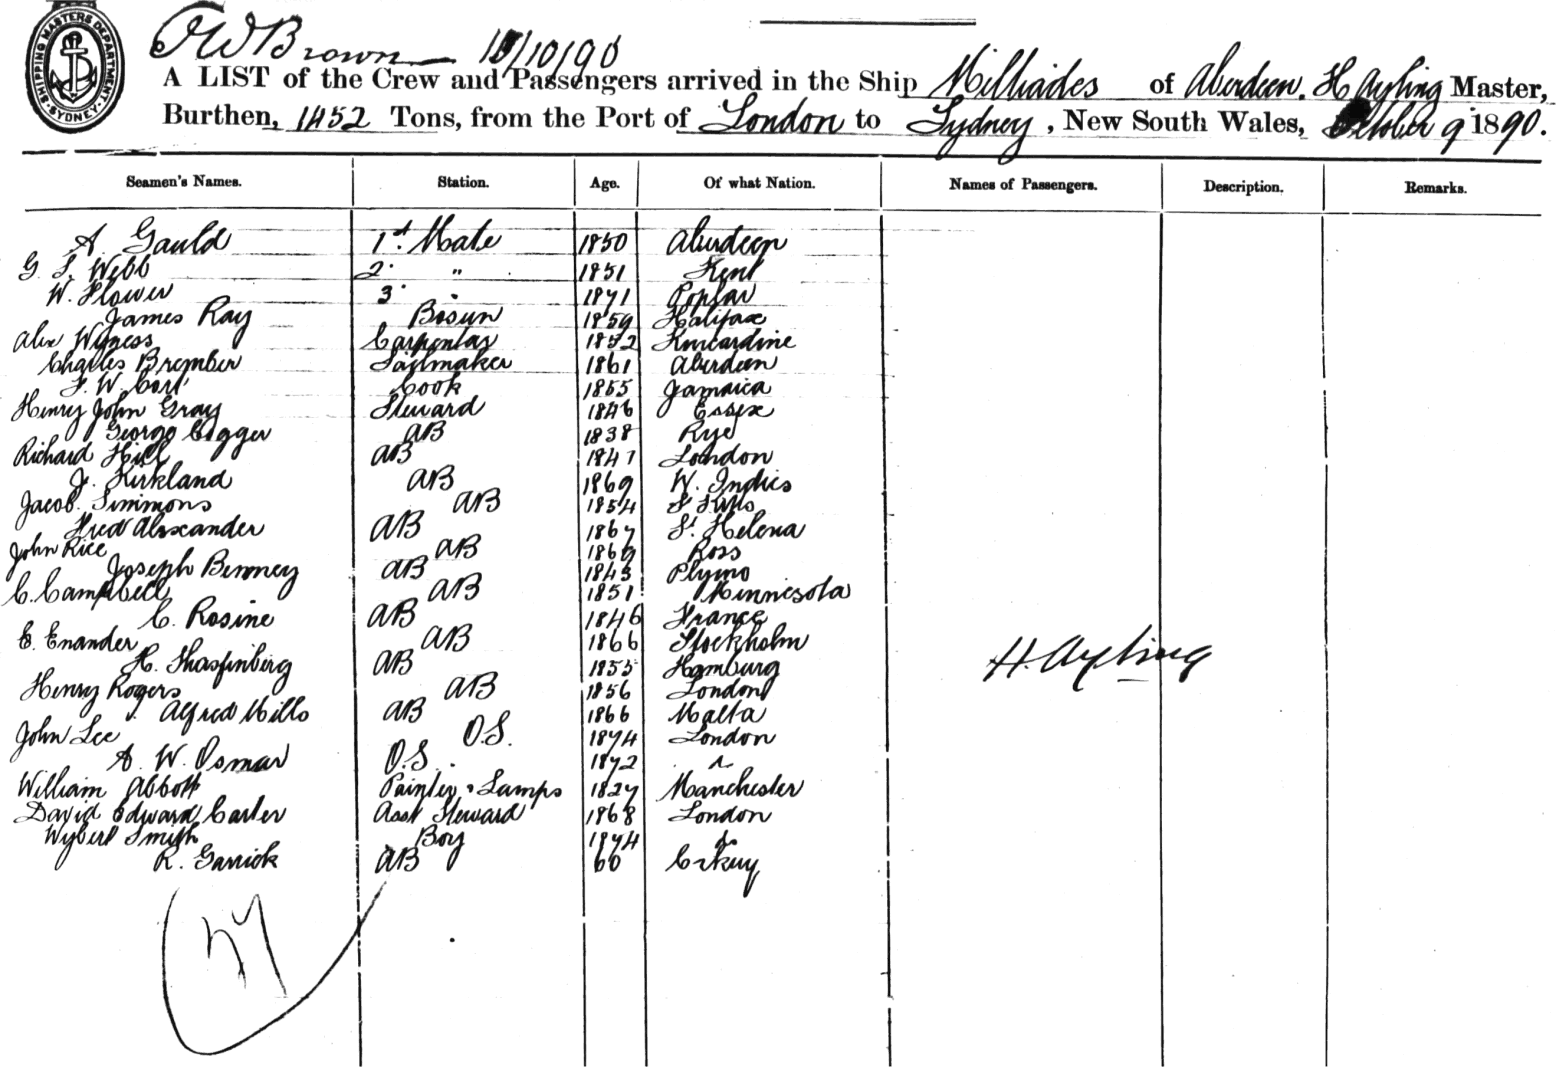 SHIPPING MASTERS DEPARTMENT SYDNEY
F W Brown 10/10/90
A LIST of the Crew and Passengers arrived in the Ship Miltiades of Aberdeen. H Ayling Master,
Burthen, 1452 Tons, from the Port of London to Sydney, New South Wales, October 9 1890.
Seamen's Names. Station. Age. Of what Nation. Names of Passengers. Description. Remarks.
A. Gauld 1st Mate 1850 Aberdeen
G. F. Webb 2 " 1851 Kent
W. Flower 3 " 1871 Poplar
James Ray Bosun 1859 Halifax
Alex Wyness Carpenter 1852 Kincardine
Charles Brember Sailmaker 1861 Aberdeen
F. W. Cook 1855 Jamaica
Henry John Gray Steward 1846 Essex
George Cogger AB 1838 Rye
Richard Hill AB 1847 London
J. Kirkland AB 1869 W. Indies
Jacob Simmons AB 1854 St Kitts
Fred Alexander AB 1867 St. Helena
John Rice AB 1869 Ross
Joseph Benney AB 1843 Plymo
C. Campbell AB 1851 Minnesota
C. Rosine AB 1846 France
E. Enander AB 1866 Stockholm
H. AB 1855 Hamburg
H. Ayling
Henry Rogers AB 1856 London
Alfred Mills AB 1866 Malta
John Lee O.S. 1874 London
A. W. Osmar O.S. 1872 "
William Abbott Painter & Lamps 1827 Manchester
David Edward Carter Asst Steward 1868 London
Wybert Smith Boy 1874 "
R. Garrick AB 60
27